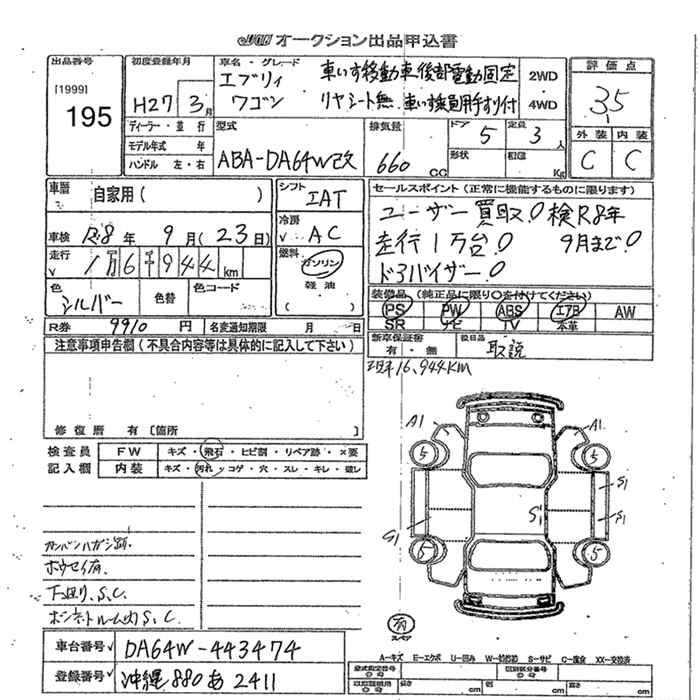 JU沖縄 オークション出品申込書
出品番号
[1999]
195
初度登録年月
H27年 3月
車名・グレード
エブリィ 車いす移動車後部電動固定
ワゴン リヤシート無 車いす乗員用手すり付
2WD
4WD
評価点
3.5
外装 内装
C C
ディーラー・並行
モデル年式 年
ハンドル 左・右
型式
ABA-DA64W改
排気量
660 CC
ドア 5
形状
定員 3 人
積載 Kg
車歴 自家用( )
シフト
IAT
車検 R8年 9月(23日)
冷房
AC
走行 1万6千944 km
燃料
ガソリン
軽油
色
シルバー
色替
色コード
R券 9910 円 名変通知期限 月 日
セールスポイント(正常に機能するものに限ります)
ユーザー買取!0 検R8年
走行1万台!0 9月まで!0
ドアバイザー!0
装備品(純正品に限り○を付けてください)
PS PW ABS エアB AW
SR ナビ TV 本革
新車保証書
有・無
後日品
取説
現16,944KM
注意事項申告欄(不具合内容等は具体的に記入して下さい)
修復歴 有[箇所
検査員
記入欄
FW キズ・飛石・ヒビ割・リペア跡・×要
内装 キズ・汚れ・コゲ・穴・スレ・キレ・破レ
カンバンハガシ跡.
ホウセイ有.
下廻り.S.C.
ボンネットルーム内S.C.
A1
A1
5
5
S1
S1
S1
S1
S1
5
5
スペア
A-キズ E-エクボ U-凹み W-補修跡 S-サビ C-腐食 XX-交換済
車台番号 DA64W-443474
登録番号 沖縄 880 あ 2411
型式指定番号
類別区分番号
cm cm cm